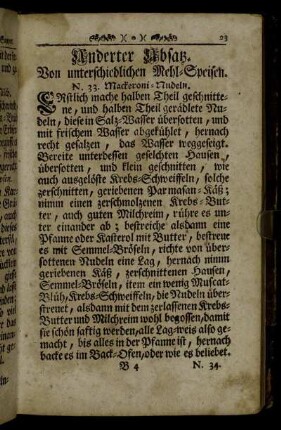 23
Anderter Absatz.
Von unterschiedlichen Mehl-Speisen.
N. 33. Mackeroni-Nudeln.
ERstlich mache halben Theil geschnitte-
ne, und halben Theil gerädlete Nu-
deln, diese in Saltz-Wasser übersotten, und
mit frischem Wasser abgekühlet, hernach
recht gesaltzen, das Wasser weggeseigt.
Bereite unterdessen geselchten Hausen,
übersotten, und klein geschnitten, wie
auch ausgelöste Krebs-Schweiffeln, solche
zerschnitten, geriebenen Parmasan-Käß;
nimm einen zerschmoltzenen Krebs-But-
ter, auch guten Milchreim, rühre es un-
ter einander ab; bestreiche alsdann eine
Pfanne oder Kasterol mit Butter, bestreue
es mit Semmel-Bröseln, richte von über-
sottenen Nudeln eine Lag, hernach nimm
geriebenen Käß, zerschnittenen Hausen,
Semmel-Bröseln, item ein wenig Muscat-
Blüh, Krebs-Schweiffeln, die Nudeln über-
streuet, alsdann mit dem zerlassenen Krebs-
Butter und Milchreim wohl begossen, damit
sie schön saftig werden, alle Lag-weis also ge-
macht, bis alles in der Pfanne ist, hernach
backe es im Back-Ofen, oder wie es beliebet.
B 4 N. 34.